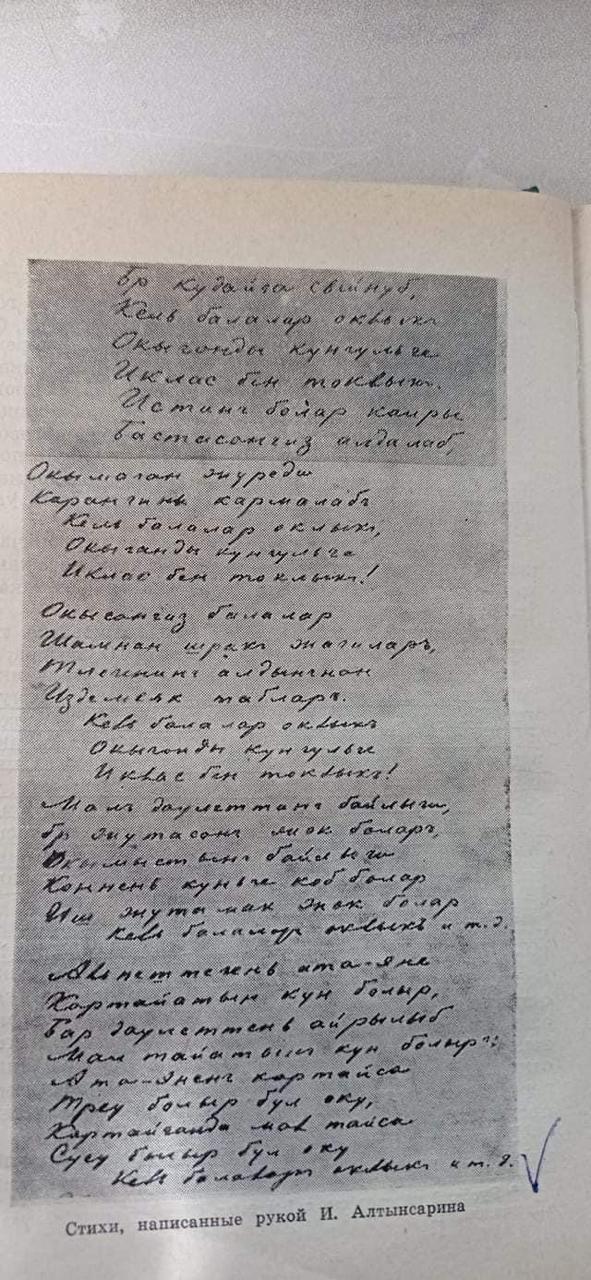 Бр кудайга сыйнуб,
Кель балалар оквыкъ
Окыгонды кунгульге
Иклас бен токвыкъ.
Истинг болар каиры
Бастасонгиз алдалаб,
Окымаган журеды
Карангины кармалабъ
Кель балалар оклыкъ,
Окыганды кунгульге
Иклас бен токлыкъ!
Окысонгиз балалар
Шамнан шракъ жагиларъ,
Тлегининг алдынгнон
Издемеяк табларъ.
Кель балалар оквыкъ
Окыгонды кунгульге
Иквас бен токвыкъ!
Малъ даулеттинг байлыгы,
бр жутасонг жок боларъ,
Окымыстынг байлыгы
Коннень куньге коб болар
Иш жутамак жок болар
Кель балалар оквыкъ и т. д.
Авпеттегень ата-яне
Картайатын кун болыр,
Бар даулеттень айрылыб
Мал тайатын кун болыръ:
Ата-яненг картайса
Треу болыр бул оку,
Картайганда мал тайса
Суеу болыр бул оку
Кель балалар оквыкъ и т. д.
Стихи, написанные рукой И. Алтынсарина